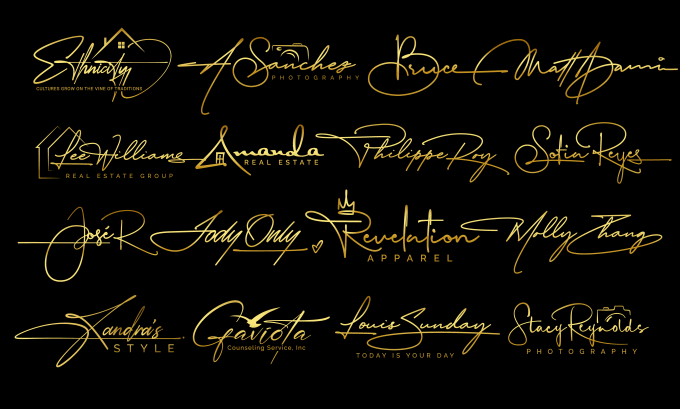 Ethnicitym
CULTURES GROW ON THE VINE OF TRADITIONS
A Sanchez
PHOTOGRAPHY
Bruce
Matt Damin
Lee Williams
REAL ESTATE GROUP
Amanda
REAL ESTATE
Philippe Roy
Sotin Reyes
José R
Jody Only
Revelation
APPAREL
Molly Zhang
Xandra's
STYLE
Gaviota
Counseling Service, Inc
Louis Sunday
TODAY IS YOUR DAY
Stacy Reynolds
PHOTOGRAPHY